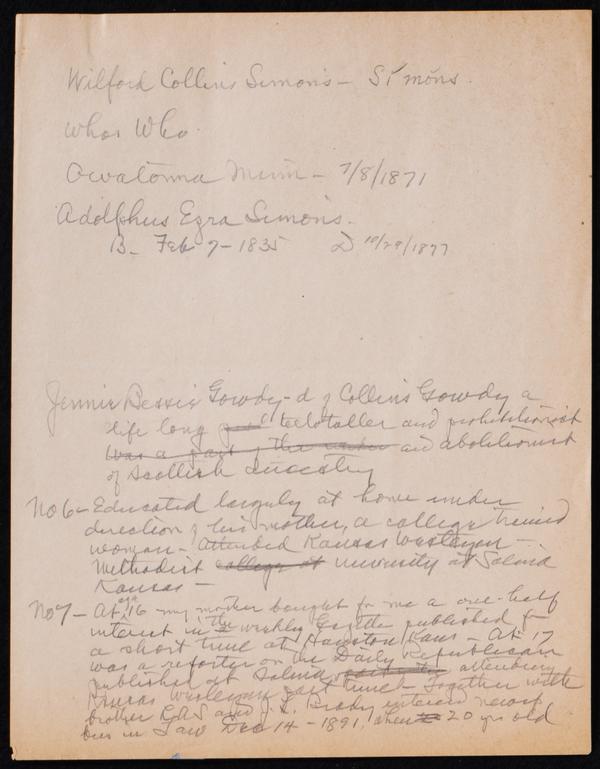 Wilford Collins Simons — Simons.
Whos Who.
Owatonna Minn — 7/8/1871
Adolphus Ezra Simons.
B. Feb 7 — 1835 D 10/29/1877
Jennie Bessie Gowdy — d of Collins Gowdy a
life long teetotaller and prohibitionist
was a part of the and abolitionist
of Scottish ancestry
No 6 — Educated largely at home under
direction of his mother, a college trained
woman — Attended Kansas Wesleyan —
Methodist college at university at Salina
Kansas —
No 7 — At age 16 my mother bought for me a one-half
interest in the weekly Gazette published for
a short time at Houston Kans — At 17
was a reporter on the Daily Republican
published at Salina attending
Kansas Wesleyan part time — Together with
brother and J. L. Brady entered newsp
bus in Law Dec 14 — 1891, when 20 yrs old